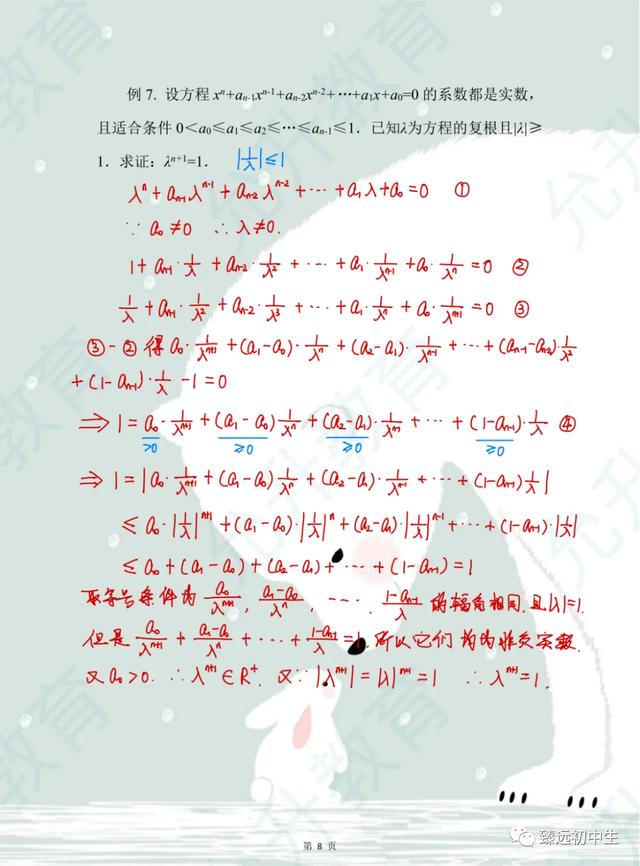 例 7. 设方程 xⁿ+aₙ₋₁xⁿ⁻¹+aₙ₋₂xⁿ⁻²+…+a₁x+a₀=0 的系数都是实数，
且适合条件 0＜a₀≤a₁≤a₂≤…≤aₙ₋₁≤1．已知λ为方程的复根且|λ|≥
1．求证：λⁿ⁺¹=1． |1/λ|≤1
λⁿ + aₙ₋₁λⁿ⁻¹ + aₙ₋₂λⁿ⁻² + … + a₁λ + a₀ = 0 ①
∵ a₀≠0 ∴ λ≠0.
1 + aₙ₋₁·1/λ + aₙ₋₂·1/λ² + … + a₁·1/λⁿ⁻¹ + a₀·1/λⁿ = 0 ②
1/λ + aₙ₋₁·1/λ² + aₙ₋₂·1/λ³ + … + a₁·1/λⁿ + a₀·1/λⁿ⁺¹ = 0 ③
③-② 得 a₀·1/λⁿ⁺¹ + (a₁-a₀)·1/λⁿ + (a₂-a₁)·1/λⁿ⁻¹ + … + (aₙ₋₁-aₙ₋₂)·1/λ²
+ (1-aₙ₋₁)·1/λ - 1 = 0
⟹ 1 = a₀·1/λⁿ⁺¹ + (a₁-a₀)1/λⁿ + (a₂-a₁)·1/λⁿ⁻¹ + … + (1-aₙ₋₁)·1/λ ④
>0 ≥0 ≥0 ≥0
⟹ 1 = |a₀·1/λⁿ⁺¹ + (a₁-a₀)1/λⁿ + (a₂-a₁)·1/λⁿ⁻¹ + … + (1-aₙ₋₁)1/λ|
≤ a₀·|1/λ|ⁿ⁺¹ + (a₁-a₀)·|1/λ|ⁿ + (a₂-a₁)·|1/λ|ⁿ⁻¹ + … + (1-aₙ₋₁)·|1/λ|
≤ a₀ + (a₁-a₀) + (a₂-a₁) + … + (1-aₙ₋₁) = 1
取等号条件为 a₀/λⁿ⁺¹, a₁-a₀/λⁿ, …, 1-aₙ₋₁/λ 的辐角相同,且|λ|=1.
但是 a₀/λⁿ⁺¹ + a₁-a₀/λⁿ + … + 1-aₙ₋₁/λ = 1. 所以它们均为非负实数.
又 a₀>0. ∴ λⁿ⁺¹∈R⁺. 又∵ |λⁿ⁺¹| = |λ|ⁿ⁺¹ = 1 ∴ λⁿ⁺¹=1.
第 8 页
臻远初中生
允升教育